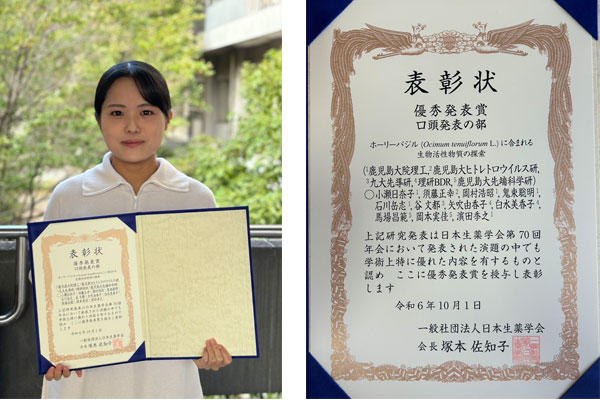 表彰状
優秀発表賞
口頭発表の部
表彰状
優秀発表賞
口頭発表の部
ホーリーバジル (Ocimum tenuiflorum L.) に含まれる
生物活性物質の探索
(¹鹿児島大院理工,²鹿児島大ヒトレトロウイルス研,
³九大先導研,⁴理研BDR,⁵鹿児島大先端科学研)
○小瀬日奈子¹,須藤正幸¹,岡村浩昭¹,鬼束聡明¹,
石川岳志¹,谷 文都³,矢吹由香子⁴,白水美香子⁴,
馬場昌範⁵,岡本実佳⁵,濵田季之¹
上記研究発表は日本生薬学会第70回
年会において発表された演題の中でも
学術上特に優れた内容を有するものと
認め ここに優秀発表賞を授与し表彰
します
令和6年10月1日
一般社団法人日本生薬学会
会長 塚本 佐知子